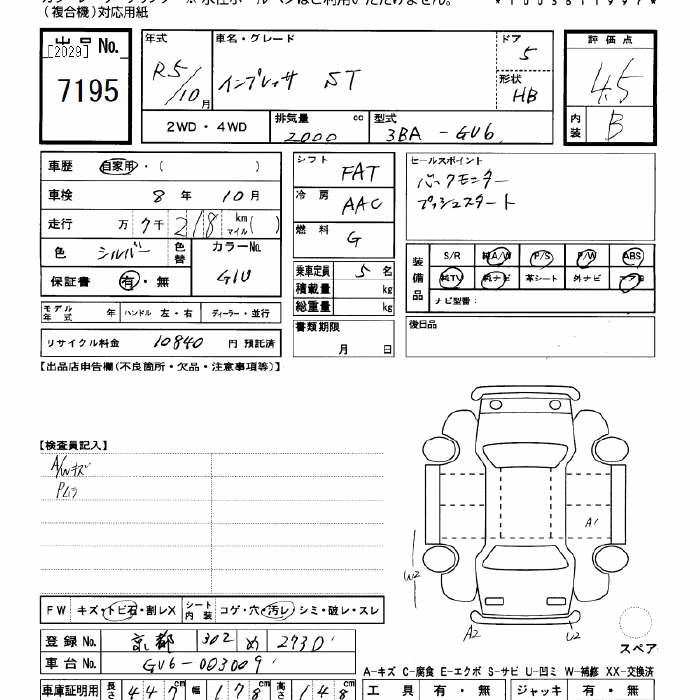 (複合機)対応用紙
出品No. [2029] 7195
年式 R5/10月
車名・グレード インプレッサ ST
ドア 5
形状 HB
評価点 4.5
内装 B
2WD・4WD
排気量 2000 cc
型式 3BA-GU6
車歴 自家用・( )
車検 8年 10月
走行 万 7千 218 km マイル( )
色 シルバー 色替 カラーNo. G1U
保証書 有・無
シフト FAT
冷房 AAC
燃料 G
乗車定員 5名
積載量 kg
総重量 kg
書類期限 月 日
セールスポイント
バックモニター
プッシュスタート
装備品 S/R 純A/W P/S P/W ABS
純TV 純ナビ 革シート 外ナビ エアB
ナビ型番:
後日品
モデル年式 年 ハンドル 左・右 ディーラー・並行
リサイクル料金 10840 円 預託済
【出品店申告欄(不良箇所・欠品・注意事項等)】
【検査員記入】
A/Wキズ
Pムラ
A1
W2
A2
U2
スペア
FW キズ・トビ石・割レX シート内装 コゲ・穴・汚レ・シミ・破レ・スレ
登録No. 京都 302 め 2730
車台No. GU6-003009
A-キズ C-腐食 E-エクボ S-サビ U-凹ミ W-補修 XX-交換済
車庫証明用 長さ 447cm 幅 178cm 高さ 148cm
工具 有・無 ジャッキ 有・無